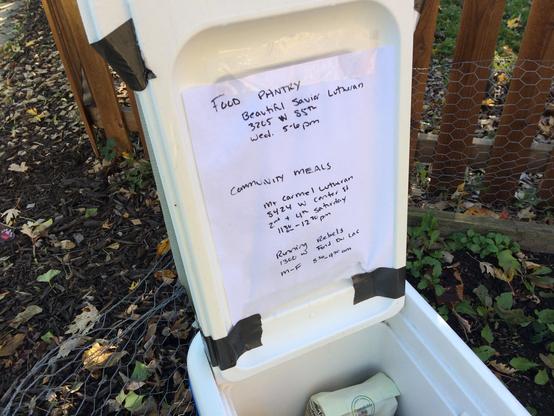 FOOD PANTRY
Beautiful Savior Lutheran
3205 N 85th
Wed. 5-6pm
COMMUNITY MEALS
Mt Carmel Lutheran
8424 W Center St
2nd + 4th Saturday
1130-1230pm
Running Rebels
1300 W Fond Du Lac
M-F